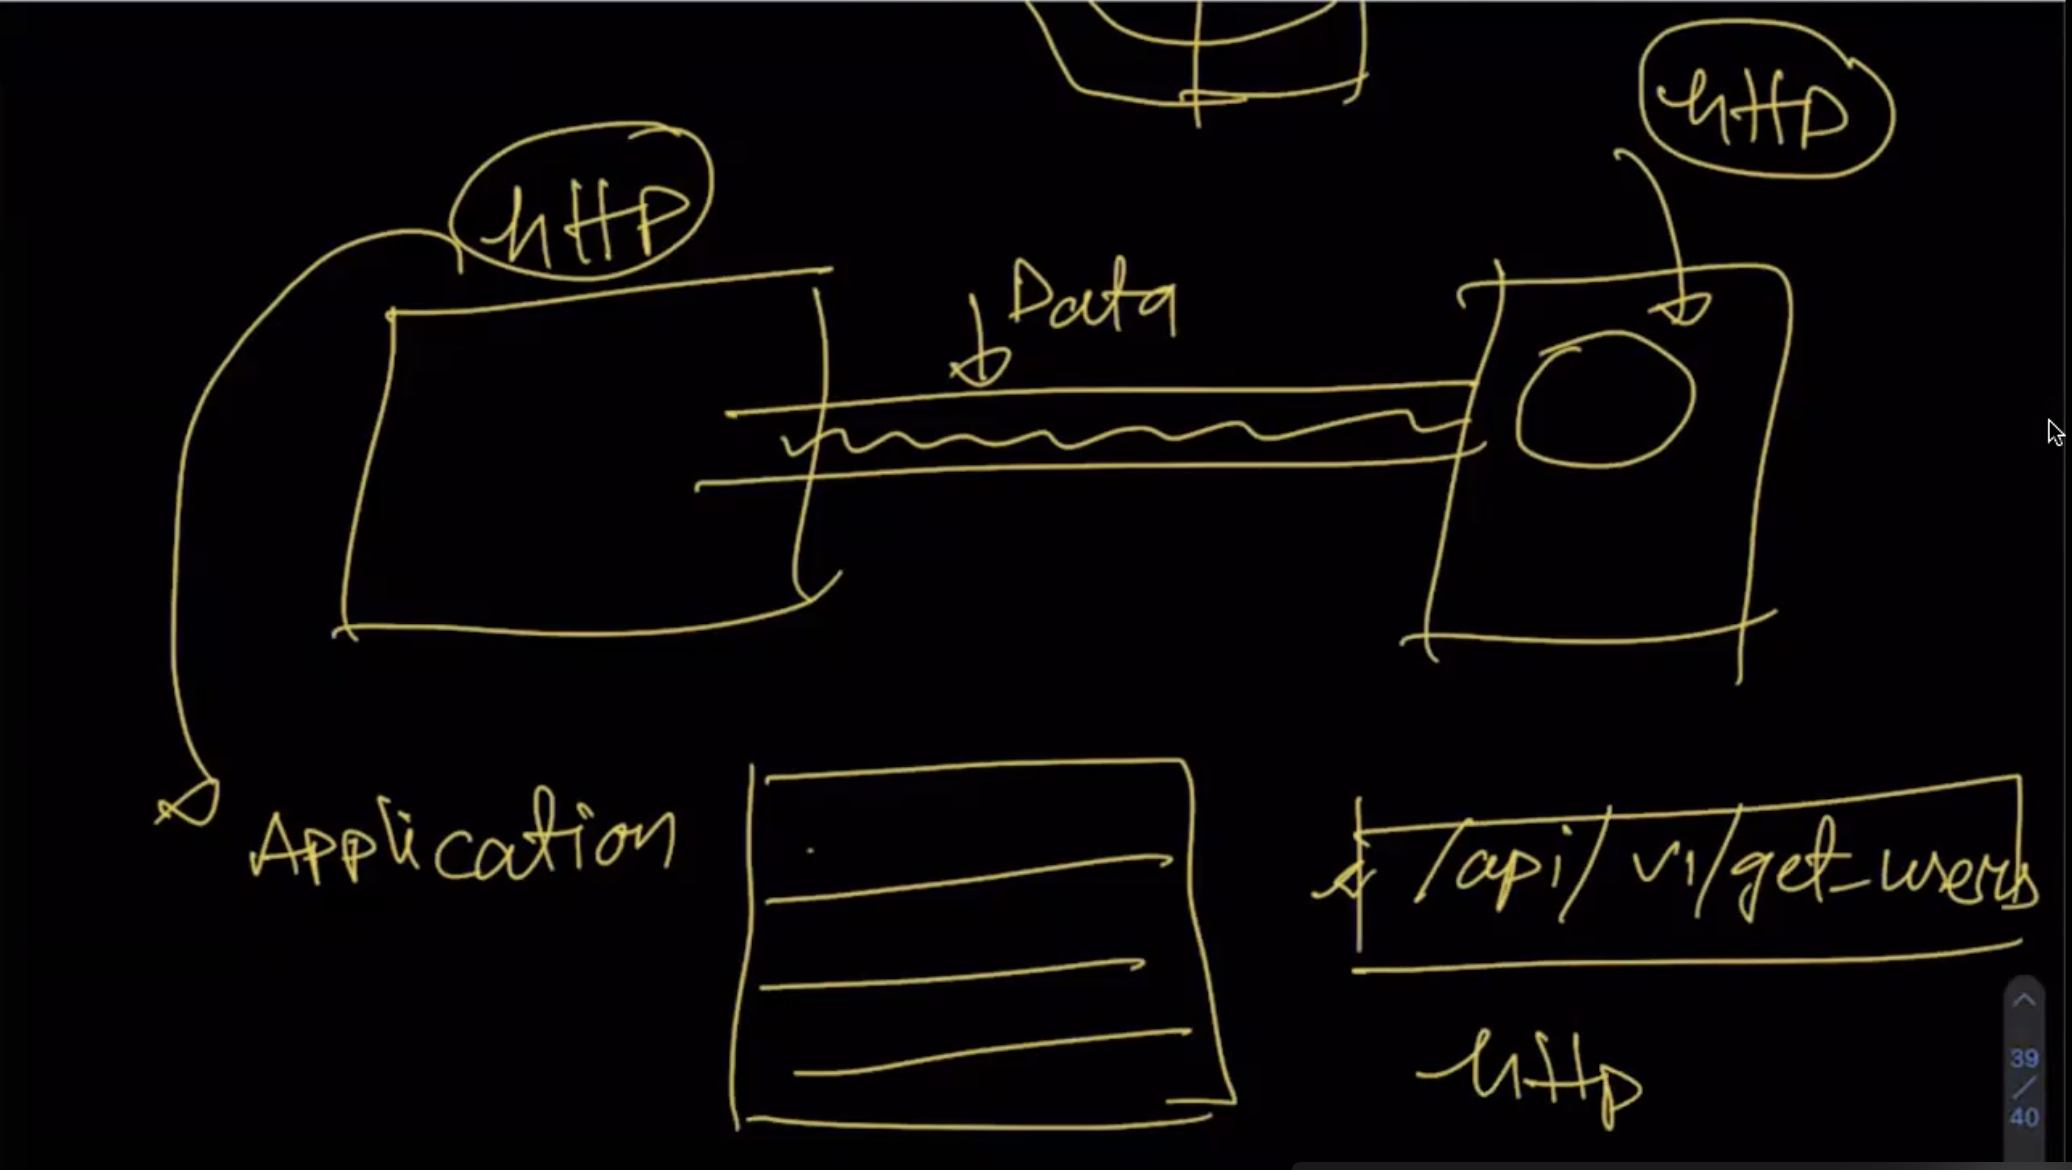 http
http
Data
Application
/api/v1/get_users
http
39
/
40